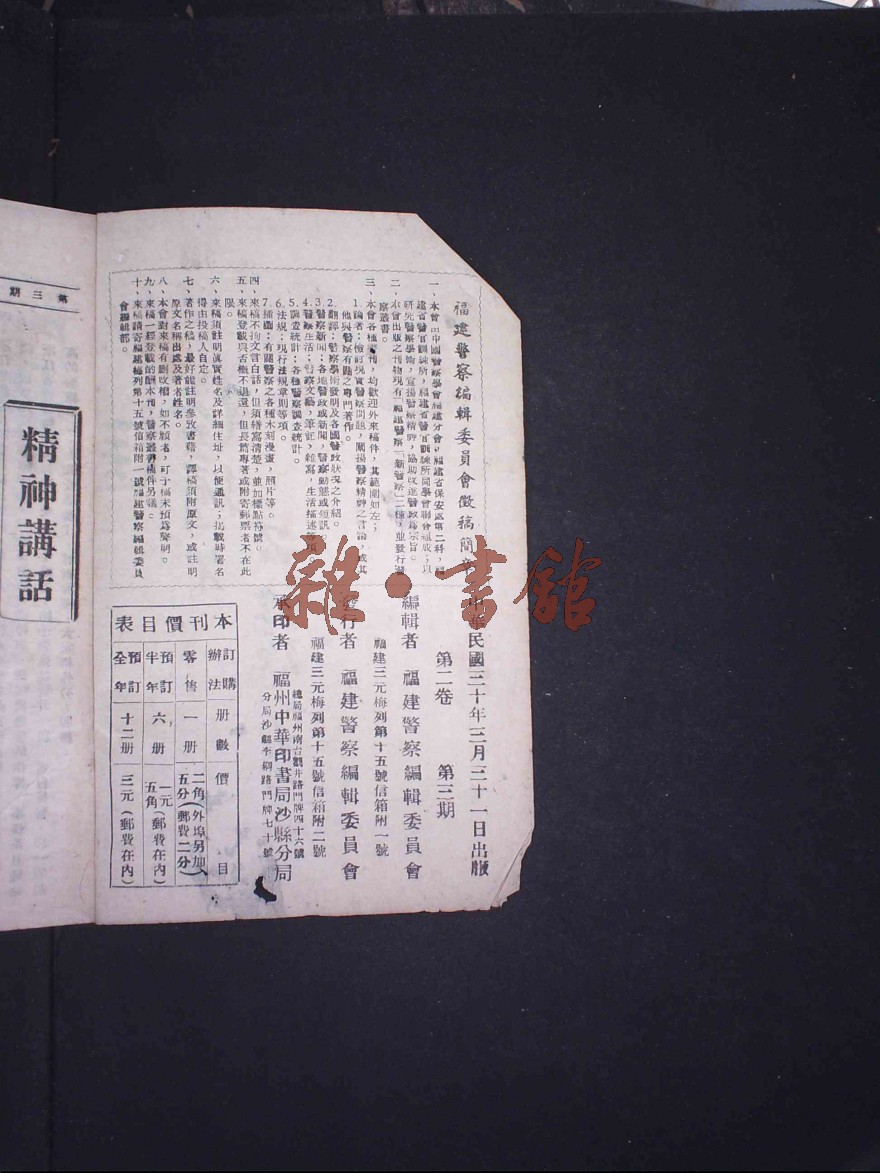 福建警察編輯委員會徵稿簡章
一、本會由中國警察學會福建分會，福建省保安處第二科，福
建省警官訓練所，福建省警官訓練所同學會聯合組成；以
研究警察學術，宣揚警察精神，協助改進警政為宗旨。
二、本會出版之刊物現有「福建警察」「新警察」二種，並發行警
察叢書。
三、本會各種書刊，均歡迎外來稿件，其範圍如左：
1.論著：檢討現實警察問題，闡揚警察精神之言論，或其
他與警察有關之專門著作。
2.翻譯：警察學術發明及各國警政狀況之介紹。
3.警察新聞：各地警政或新聞，警察動態或短訊
4.警察生活：警察文藝，筆記，雜寫，生活描述等項
5.調查統計：各種警察調查統計。
6.法規：現行法規章則等項。
7.插圖：有關警察之各種木刻漫畫，照片等。
四、來稿不拘文言白話，但須繕寫清楚，並加標點符號。
五、來稿登載與否概不退還，但長篇專著或附寄郵票者不在此
限。
六、來稿須註明真實姓名及詳細住址，以便通訊；揭載時署名
得由投稿人自定。
七、著作之稿，最好能註明參攷書籍，譯稿須附原文，或註明
原文名稱出處及著者姓名。
八、本會對來稿有刪改權，如不願者，可于稿末預為聲明。
九、來稿一經登載酌酬本刊，警察叢書稿件另議。
十、來稿請寄福建梅列第十五號信箱附一號福建警察編輯委員
會編輯部。
中華民國三十年三月三十一日出版
第二卷 第三期
編輯者 福建警察編輯委員會
福建三元梅列第十五號信箱附一號
發行者 福建警察編輯委員會
福建三元梅列第十五號信箱附二號
承印者 福州中華印書局沙縣分局
總局福州南台觀井路門牌四十六號
分局沙縣李綱路門牌七十號
本刊價目表
訂購辦法 册數 價目
零售 一册 二角五分(外埠另加郵費二分)
預訂半年 六册 一元五角(郵費在內)
預訂全年 十二册 三元(郵費在內)
第三期
精神講話
雜·書館